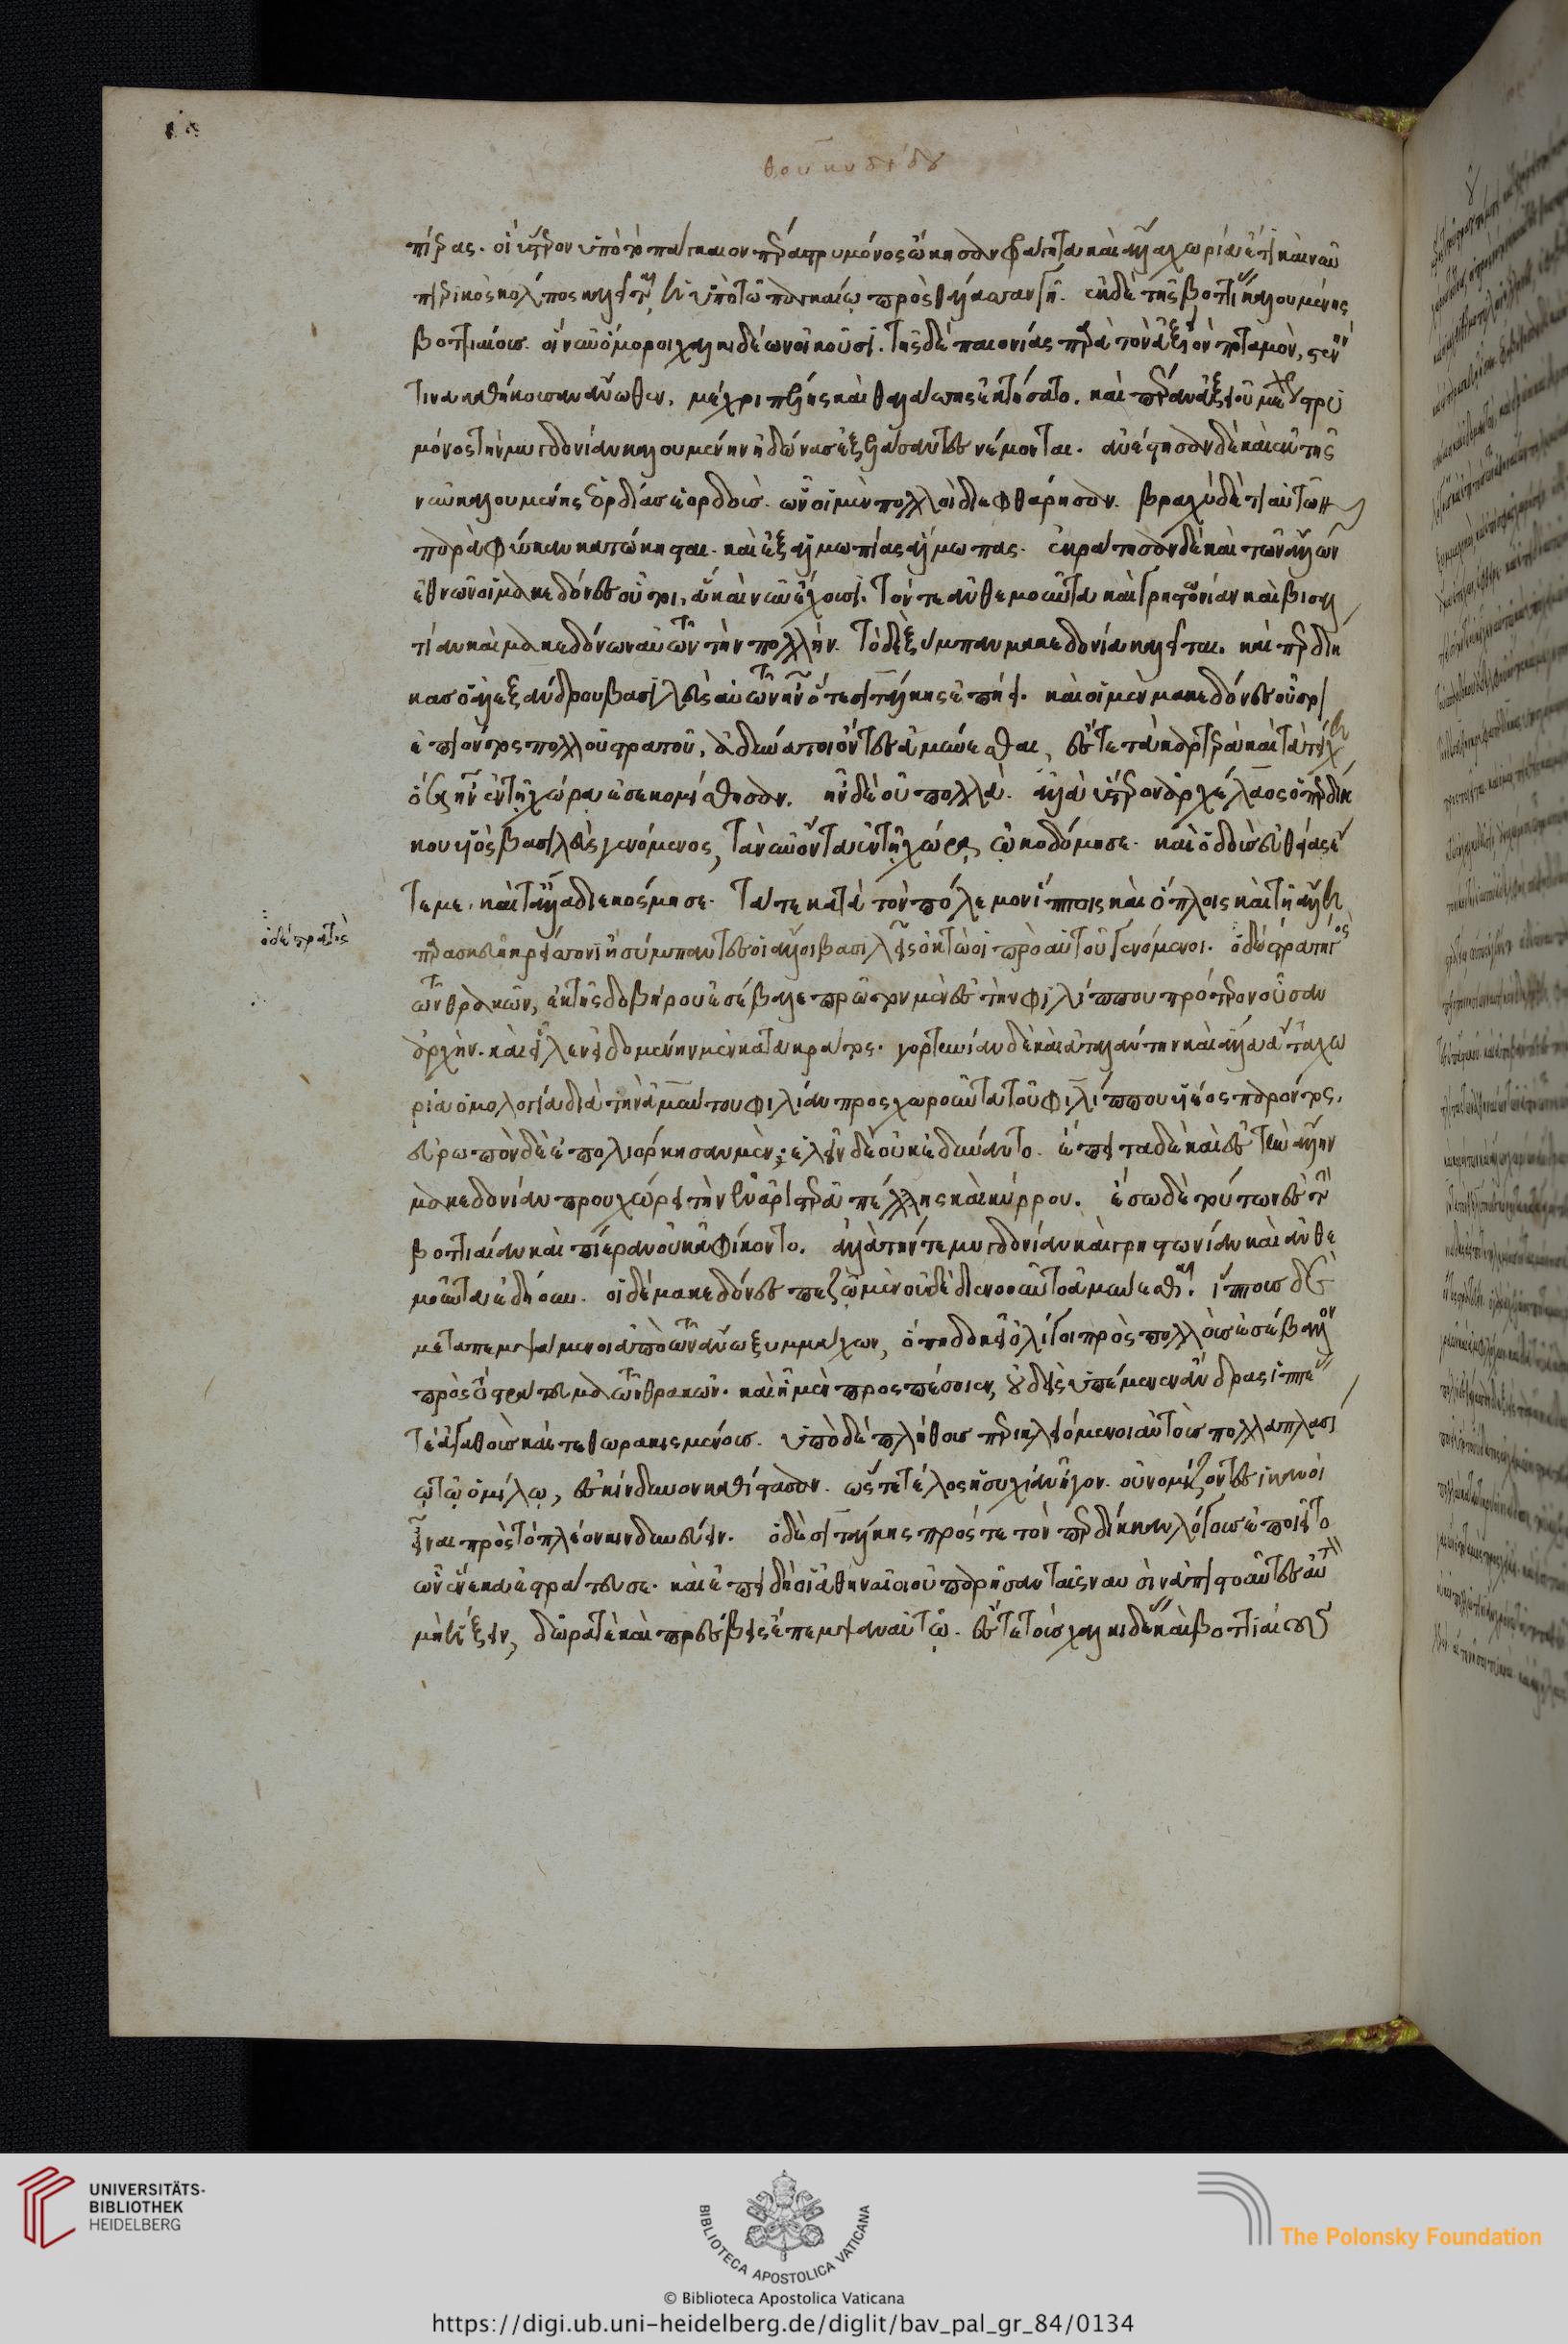 θουκυδίδου
πίερας. οἳ ὕστερον ὑπὸ τὸ πάγγαιον πέραν στρυμόνος ᾤκησαν φάγρητα καὶ ἄλλα χωρία. ἔτι καὶ νῦν
πιερικὸς κόλπος καλεῖται ἡ ὑπὸ τῷ παγγαίῳ πρὸς θάλασσαν γῆ. ἐκ δὲ τῆς βοττίας καλουμένης
βοττιαίους. οἳ νῦν ὅμοροι χαλκιδέων οἰκοῦσι. τῆς δὲ παιονίας παρὰ τὸν ἄξιον ποταμὸν, στενήν
τινα καθήκουσαν ἄνωθεν. μέχρι πέλλης καὶ θαλάσσης ἐκτήσατο. καὶ πέραν ἀξίου μέχρι στρυ
μόνος τὴν μυγδονίαν καλουμένην ἠδῶνας ἐξελάσαντες νέμονται. ἀνέστησαν δὲ καὶ ἐκ τῆς
νῦν καλουμένης ἐορδίας ἐορδούς. ὧν οἱ μὲν πολλοὶ διεφθάρησαν. βραχὺ δέ τι αὐτῶν
περὶ φύσκαν κατῴκηται. καὶ ἐξ ἀλμωπίας ἄλμωπας. ἐκράτησαν δὲ καὶ τῶν ἄλλων
ἐθνῶν οἱ μακεδόνες οὗτοι, ἃ καὶ νῦν ἔχουσι. τόν τε ἀνθεμοῦντα καὶ γρηστωνίαν καὶ βισαλ
τίαν καὶ μακεδόνων αὐτῶν τὴν πολλήν. τὸ δὲ ξύμπαν μακεδονία καλεῖται. καὶ περδίκ
κας ὁ ἀλεξάνδρου βασιλεὺς αὐτῶν ἦν ὅτε σιτάλκης ἐπῄει. καὶ οἱ μὲν μακεδόνες οὗτοι
ἐπιόντος πολλοῦ στρατοῦ, ἀδύνατοι ὄντες ἀμύνεσθαι, ἔς τε τὰ καρτερὰ καὶ τὰ τείχη
ὅσα ἦν ἐν τῇ χώρᾳ ἐσεκομίσθησαν. ἦν δὲ οὐ πολλά. ἀλλὰ ὕστερον ἀρχέλαος ὁ περδίκ
κου υἱὸς βασιλεὺς γενόμενος, τὰ νῦν ὄντα ἐν τῇ χώρᾳ ᾠκοδόμησε. καὶ ὁδοὺς εὐθείας ἔ
τεμε. καὶ τἄλλα διεκόσμησε. τά τε κατὰ τὸν πόλεμον ἵπποις καὶ ὅπλοις καὶ τῇ ἄλλῃ
παρασκευῇ κρείσσονι ἢ σύμπαντες οἱ ἄλλοι βασιλεῖς ὀκτὼ οἱ πρὸ αὐτοῦ γενόμενοι. ὁ δὲ στρατὸς
ὁ δὲ στρατὸς
τῶν θρακῶν, ἐκ τῆς δοβήρου ἐσέβαλε πρῶτον μὲν ἐς τὴν φιλίππου πρότερον οὖσαν
ἀρχήν. καὶ εἷλεν εἰδομένην μὲν κατὰ κράτος. γορτυνίαν δὲ καὶ ἀταλάντην καὶ ἄλλα ἄττα χω
ρία ὁμολογίᾳ διὰ τὴν ἀμύντου φιλίαν προσχωροῦντα τοῦ φιλίππου υἱέος παρόντος.
εὐρωπὸν δὲ ἐπολιόρκησαν μὲν, ἑλεῖν δὲ οὐκ ἐδύναντο. ἔπειτα δὲ καὶ ἐς τὴν ἄλλην
μακεδονίαν προυχώρει τὴν ἐν ἀριστερᾷ πέλλης καὶ κύρρου. ἔσω δὲ τούτων ἐς τὴν
βοττιαίαν καὶ πιερίαν οὐκ ἀφίκοντο. ἀλλὰ τήν τε μυγδονίαν καὶ γρηστωνίαν καὶ ἀνθε
μοῦντα ἐδῄουν. οἱ δὲ μακεδόνες πεζῷ μὲν οὐδὲ διενοοῦντο ἀμύνεσθαι. ἵππους δὲ
μεταπεμψάμενοι ἀπὸ τῶν ἄνω ξυμμάχων, ὅπῃ δοκεῖ ὀλίγοι πρὸς πολλοὺς ἐσέβαλλον
πρὸς τὸ στράτευμα τῶν θρακῶν. καὶ ᾗ μὲν προσπέσοιεν, οὐδεὶς ὑπέμενεν ἄνδρας ἱππέας
τε ἀγαθοὺς καὶ τεθωρακισμένους. ὑπὸ δὲ πλήθους περικλειόμενοι αὑτοὺς πολλαπλασί
ῳ τῷ ὁμίλῳ, ἐς κίνδυνον καθίστασαν. ὥστε τέλος ἡσυχίαν ἦγον. οὐ νομίζοντες ἱκανοὶ
εἶναι πρὸς τὸ πλέον κινδυνεύειν. ὁ δὲ σιτάλκης πρός τε τὸν περδίκκαν λόγους ἐποιεῖτο
ὧν ἕνεκα ἐστράτευσε. καὶ ἐπειδὴ οἱ ἀθηναῖοι οὐ παρῆσαν ταῖς ναυσὶν ἀπιστοῦντες αὐτὸν
μὴ ἥξειν, δῶρά τε καὶ πρέσβεις ἔπεμψαν αὐτῷ. ἔς τε τοὺς χαλκιδέας καὶ βοττιαίους
UNIVERSITÄTS-
BIBLIOTHEK
HEIDELBERG
BIBLIOTECA APOSTOLICA VATICANA
The Polonsky Foundation
© Biblioteca Apostolica Vaticana
https://digi.ub.uni-heidelberg.de/diglit/bav_pal_gr_84/0134